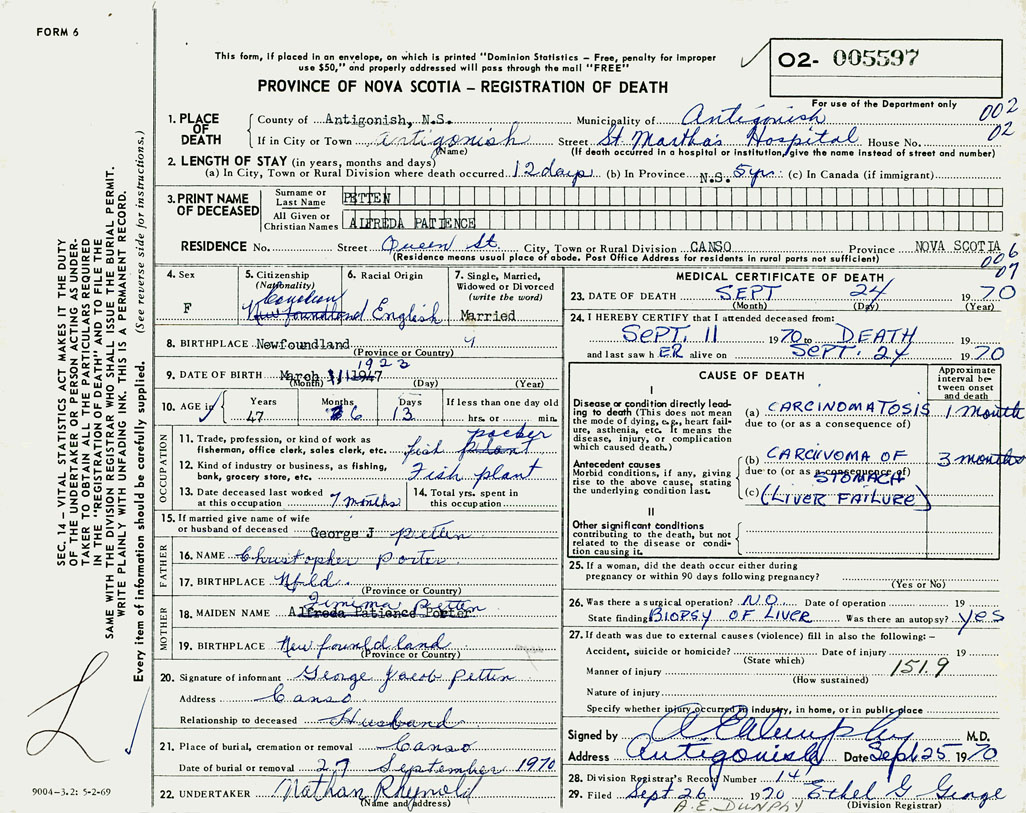 FORM 6
This form, if placed in an envelope, on which is printed "Dominion Statistics – Free, penalty for improper
use $50," and properly addressed will pass through the mail "FREE"
O2- 005597
PROVINCE OF NOVA SCOTIA – REGISTRATION OF DEATH
For use of the Department only
002
02
1. PLACE OF DEATH
County of Antigonish, N.S. Municipality of Antigonish
If in City or Town Antigonish Street St Martha's Hospital House No.
(Name) (If death occurred in a hospital or institution, give the name instead of street and number)
2. LENGTH OF STAY (in years, months and days)
(a) In City, Town or Rural Division where death occurred 12 days (b) In Province N.S. 5 yr. (c) In Canada (if immigrant)
3. PRINT NAME OF DECEASED
Surname or Last Name PETTEN
All Given or Christian Names ALFREDA PATIENCE
RESIDENCE No. Street Queen St. City, Town or Rural Division CANSO Province NOVA SCOTIA
(Residence means usual place of abode. Post Office Address for residents in rural parts not sufficient)
006
07
4. Sex
F
5. Citizenship
(Nationality)
Canadian
Newfoundland
6. Racial Origin
English
7. Single, Married,
Widowed or Divorced
(write the word)
Married
8. BIRTHPLACE Newfoundland
(Province or Country)
9. DATE OF BIRTH March 1923
(Month) (Day) (Year)
10. AGE in
Years
47
Months
6
Days
13
If less than one day old
hrs. or min.
OCCUPATION
11. Trade, profession, or kind of work as
fisherman, office clerk, sales clerk, etc. fish plant packer
12. Kind of industry or business, as fishing,
bank, grocery store, etc. Fish plant
13. Date deceased last worked
at this occupation 7 months
14. Total yrs. spent in
this occupation
15. If married give name of wife
or husband of deceased George J Petten
FATHER
16. NAME Christopher Porter
17. BIRTHPLACE Nfld.
(Province or Country)
MOTHER
18. MAIDEN NAME Alfreda Patience Porter
Petten
19. BIRTHPLACE Newfoundland
(Province or Country)
20. Signature of informant George Jacob Petten
Address Canso
Relationship to deceased Husband
21. Place of burial, cremation or removal Canso
Date of burial or removal 27 September 1970
22. UNDERTAKER Nathan
(Name and address)
MEDICAL CERTIFICATE OF DEATH
23. DATE OF DEATH SEPT 24 1970
(Month) (Day) (Year)
24. I HEREBY CERTIFY that I attended deceased from:
SEPT. 11 1970 to DEATH
and last saw h ER alive on SEPT. 24 1970
CAUSE OF DEATH
Approximate
interval be-
tween onset
and death
I
Disease or condition directly lead-
ing to death (This does not mean
the mode of dying, e.g., heart fail-
ure, asthenia, etc. It means the
disease, injury, or complication
which caused death.)
(a) CARCINOMATOSIS 1 month
due to (or as a consequence of)
Antecedent causes
Morbid conditions, if any, giving
rise to the above cause, stating
the underlying condition last.
(b) CARCINOMA OF 3 months
due to (or as a consequence of)
STOMACH
(c) (LIVER FAILURE)
II
Other significant conditions
contributing to the death, but not
related to the disease or condi-
tion causing it.
25. If a woman, did the death occur either during
pregnancy or within 90 days following pregnancy?
(Yes or No)
26. Was there a surgical operation? NO Date of operation 19
State finding BIOPSY OF LIVER Was there an autopsy? Yes
27. If death was due to external causes (violence) fill in also the following:–
Accident, suicide or homicide? Date of injury 19
(State which)
Manner of injury 151.9
(How sustained)
Nature of injury
Specify whether injury occurred in industry, in home, or in public place
Signed by A E Dunphy M.D.
Address Antigonish Date Sept 25 1970
28. Division Registrar's Record Number 14
29. Filed Sept 26 1970 Ethel G George
A.E. DUNPHY (Division Registrar)
SEC. 14 – VITAL STATISTICS ACT MAKES IT THE DUTY
OF THE UNDERTAKER OR PERSON ACTING AS UNDER-
TAKER TO OBTAIN ALL THE PARTICULARS REQUIRED
IN THE "REGISTRATION OF DEATH" AND TO FILE THE
SAME WITH THE DIVISION REGISTRAR WHO SHALL ISSUE THE BURIAL PERMIT.
WRITE PLAINLY WITH UNFADING INK. THIS IS A PERMANENT RECORD.
Every item of information should be carefully supplied. (See reverse side for instructions.)
9004–3.2: 5-2-69